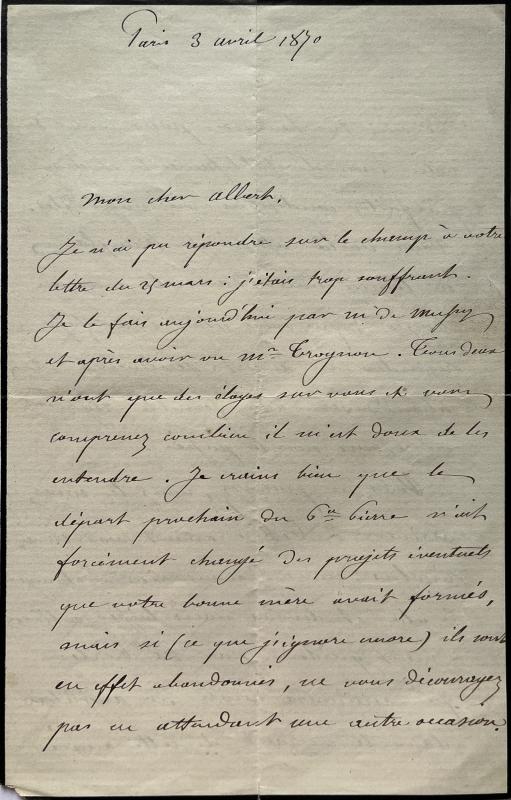 Paris 3 avril 1870
Mon cher Albert,
Je n'ai pu répondre sur le champ à votre
lettre du 25 mars : j'étais trop souffrant.
Je le fais aujourd'hui par Mr de Mussy
et après avoir vu Mr Trognon. Tous deux
n'ont que des éloges sur vous et vous
comprenez combien il m'est doux de les
entendre. Je crains bien que le
départ prochain du Cte Pierre n'ait
forcément changé des projets éventuels
que votre bonne mère avait formés,
mais si (ce que j'ignore encore) ils sont
en effet abandonnés, ne vous découragez
pas en attendant une autre occasion.